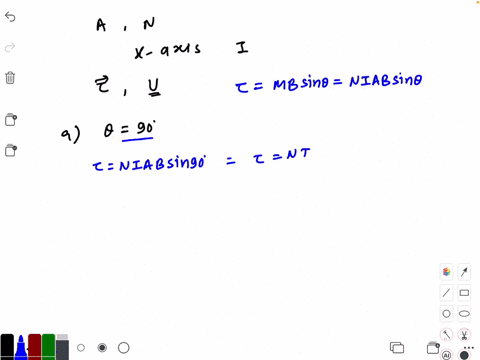 A , N
x-axis I
τ⃗ , U τ = MBsinθ = NIABsinθ
a) θ = 90°
τ = NIABsin90° = τ = NI